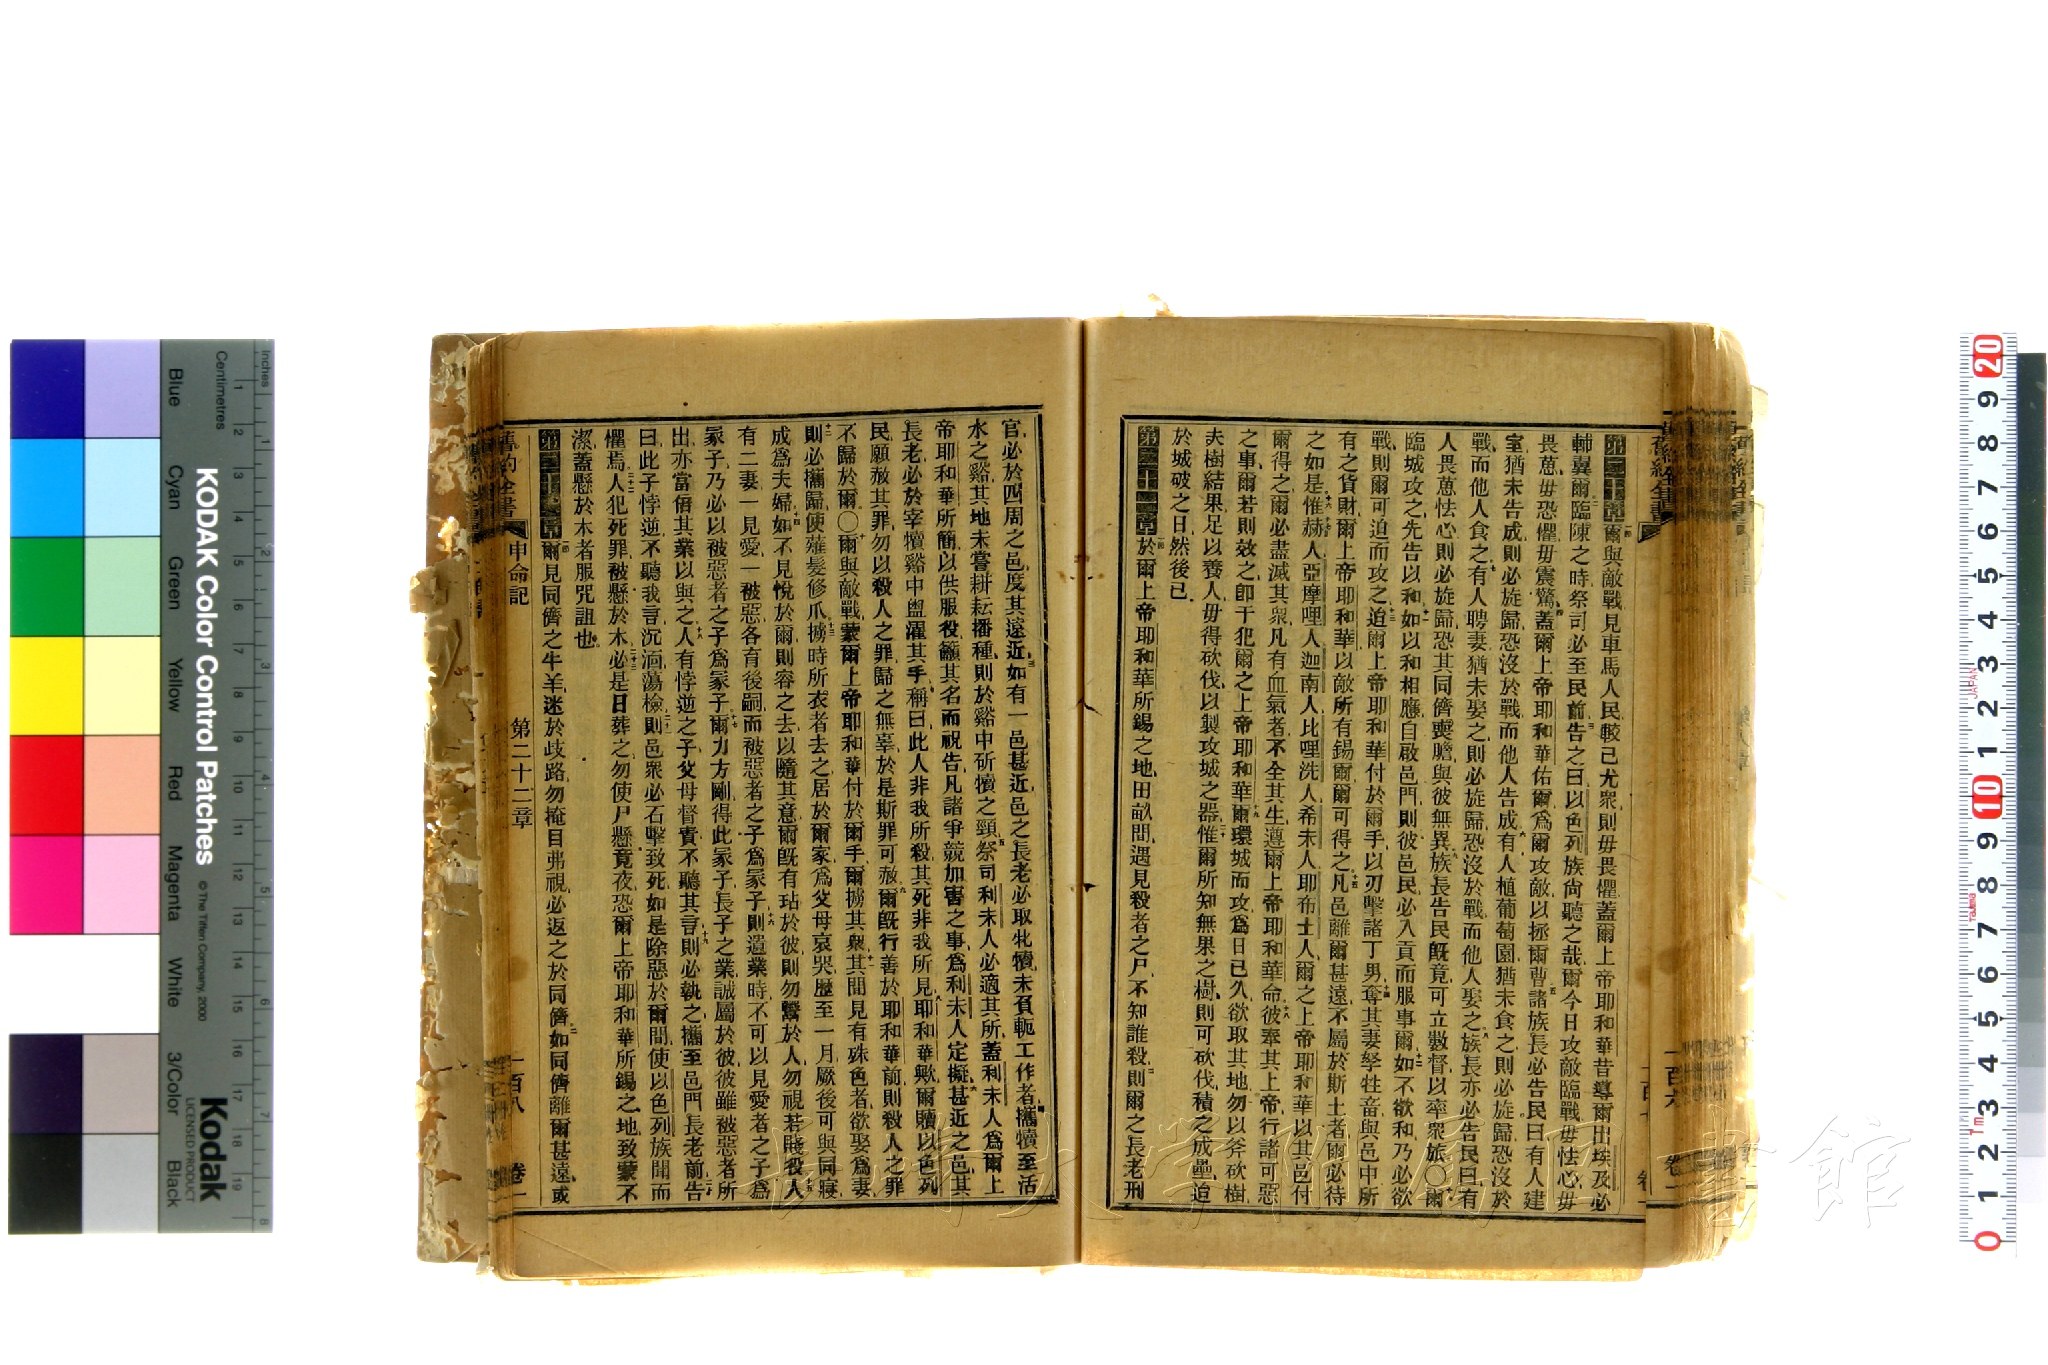 第二十章 爾與敵戰見車馬人民較己尤衆則毋畏懼蓋爾上帝耶和華昔導爾出埃及必
輔翼爾臨陳之時祭司必至民前告之曰以色列族尚聽之哉爾今日攻敵臨戰毋怯心毋
畏葸毋恐懼毋震驚蓋爾上帝耶和華佑爾爲爾攻敵以拯爾曹諸族長必告民曰有人建
室猶未告成則必旋歸恐沒於戰而他人告成有人植葡萄園猶未食之則必旋歸恐沒於
戰而他人食之有人聘妻猶未娶之則必旋歸恐沒於戰而他人娶之族長亦必告民曰有
人畏葸怯心則必旋歸恐其同儕喪膽與彼無異族長告民旣竟可立數督以率衆旅〇爾
臨城攻之先告以和如以和相應自啟邑門則彼邑民必入貢而服事爾如不欲和乃必欲
戰則爾可迫而攻之迨爾上帝耶和華付於爾手以刃擊諸丁男奪其妻孥牲畜與邑中所
有之貨財爾上帝耶和華以敵所有錫爾爾可得之凡邑離爾甚遠不屬於斯土者爾必待
之如是惟赫人亞摩哩人迦南人比哩洗人希未人耶布士人爾之上帝耶和華以其邑付
爾得之爾必盡滅其衆凡有血氣者不全其生遵爾上帝耶和華命彼奉其上帝行諸可惡
之事爾若則效之卽干犯爾之上帝耶和華爾環城而攻爲日已久欲取其地勿以斧砍樹
夫樹結果足以養人毋得砍伐以製攻城之器惟爾所知無果之樹則可砍伐積之成壘迨
於城破之日然後已
第二十一章 於爾上帝耶和華所錫之地田畝間遇見殺者之尸不知誰殺則爾之長老刑
官必於四周之邑度其遠近如有一邑甚近邑之長老必取牝犢未負軛工作者攜犢至活
水之谿其地未嘗耕耘播種則於谿中斫犢之頸祭司利未人必適其所蓋利未人爲爾上
帝耶和華所簡以供服役籲其名而祝告凡諸爭競加害之事爲利未人定擬甚近之邑其
長老必於宰犢谿中盥濯其手稱曰此人非我所殺其死非我所見耶和華歟爾贖以色列
民願赦其罪勿以殺人之罪歸之無辜於是斯罪可赦爾旣行善於耶和華前則殺人之罪
不歸於爾〇爾與敵戰蒙爾上帝耶和華付於爾手爾擄其衆其間見有姝色者欲娶爲妻
則必攜歸使薙髮修爪擄時所衣者去之居於爾家爲父母哀哭歷至一月厥後可與同寢
成爲夫婦如不見悅於爾則容之去以隨其意爾旣有玷於彼則勿鬻於人勿視若賤役人
有二妻一見愛一被惡各育後嗣而被惡者之子爲冢子則遺業時不可以見愛者之子爲
冢子乃必以被惡者之子爲冢子爾力方剛得此冢子長子之業誠屬於彼彼雖被惡者所
出亦當倍其業以與之人有悖逆之子父母督責不聽其言則必執之攜至邑門長老前告
曰此子悖逆不聽我言沉湎蕩檢則邑衆必石擊致死如是除惡於爾間使以色列族聞而
懼焉人犯死罪被懸於木必是日葬之勿使尸懸竟夜恐爾上帝耶和華所錫之地致蒙不
潔蓋懸於木者服咒詛也
第二十二章 爾見同儕之牛羊迷於歧路勿掩目弗視必返之於同儕如同儕離爾甚遠或
舊約全書 申命記 第二十二章 二百八 卷一
KODAK Color Control Patches
© The Tiffen Company, 2000
Kodak
LICENSED PRODUCT
Inches
Centimetres
Blue
Cyan
Green
Yellow
Red
Magenta
White
3/Color
Black
JAPAN